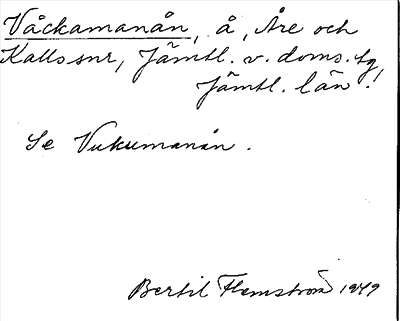 Våckamanån, å, Åre och
Kalls snr, Jämtl. v. doms. tg
Jämtl. län!
Se Vukumanån.
Bertil Flemström 1949